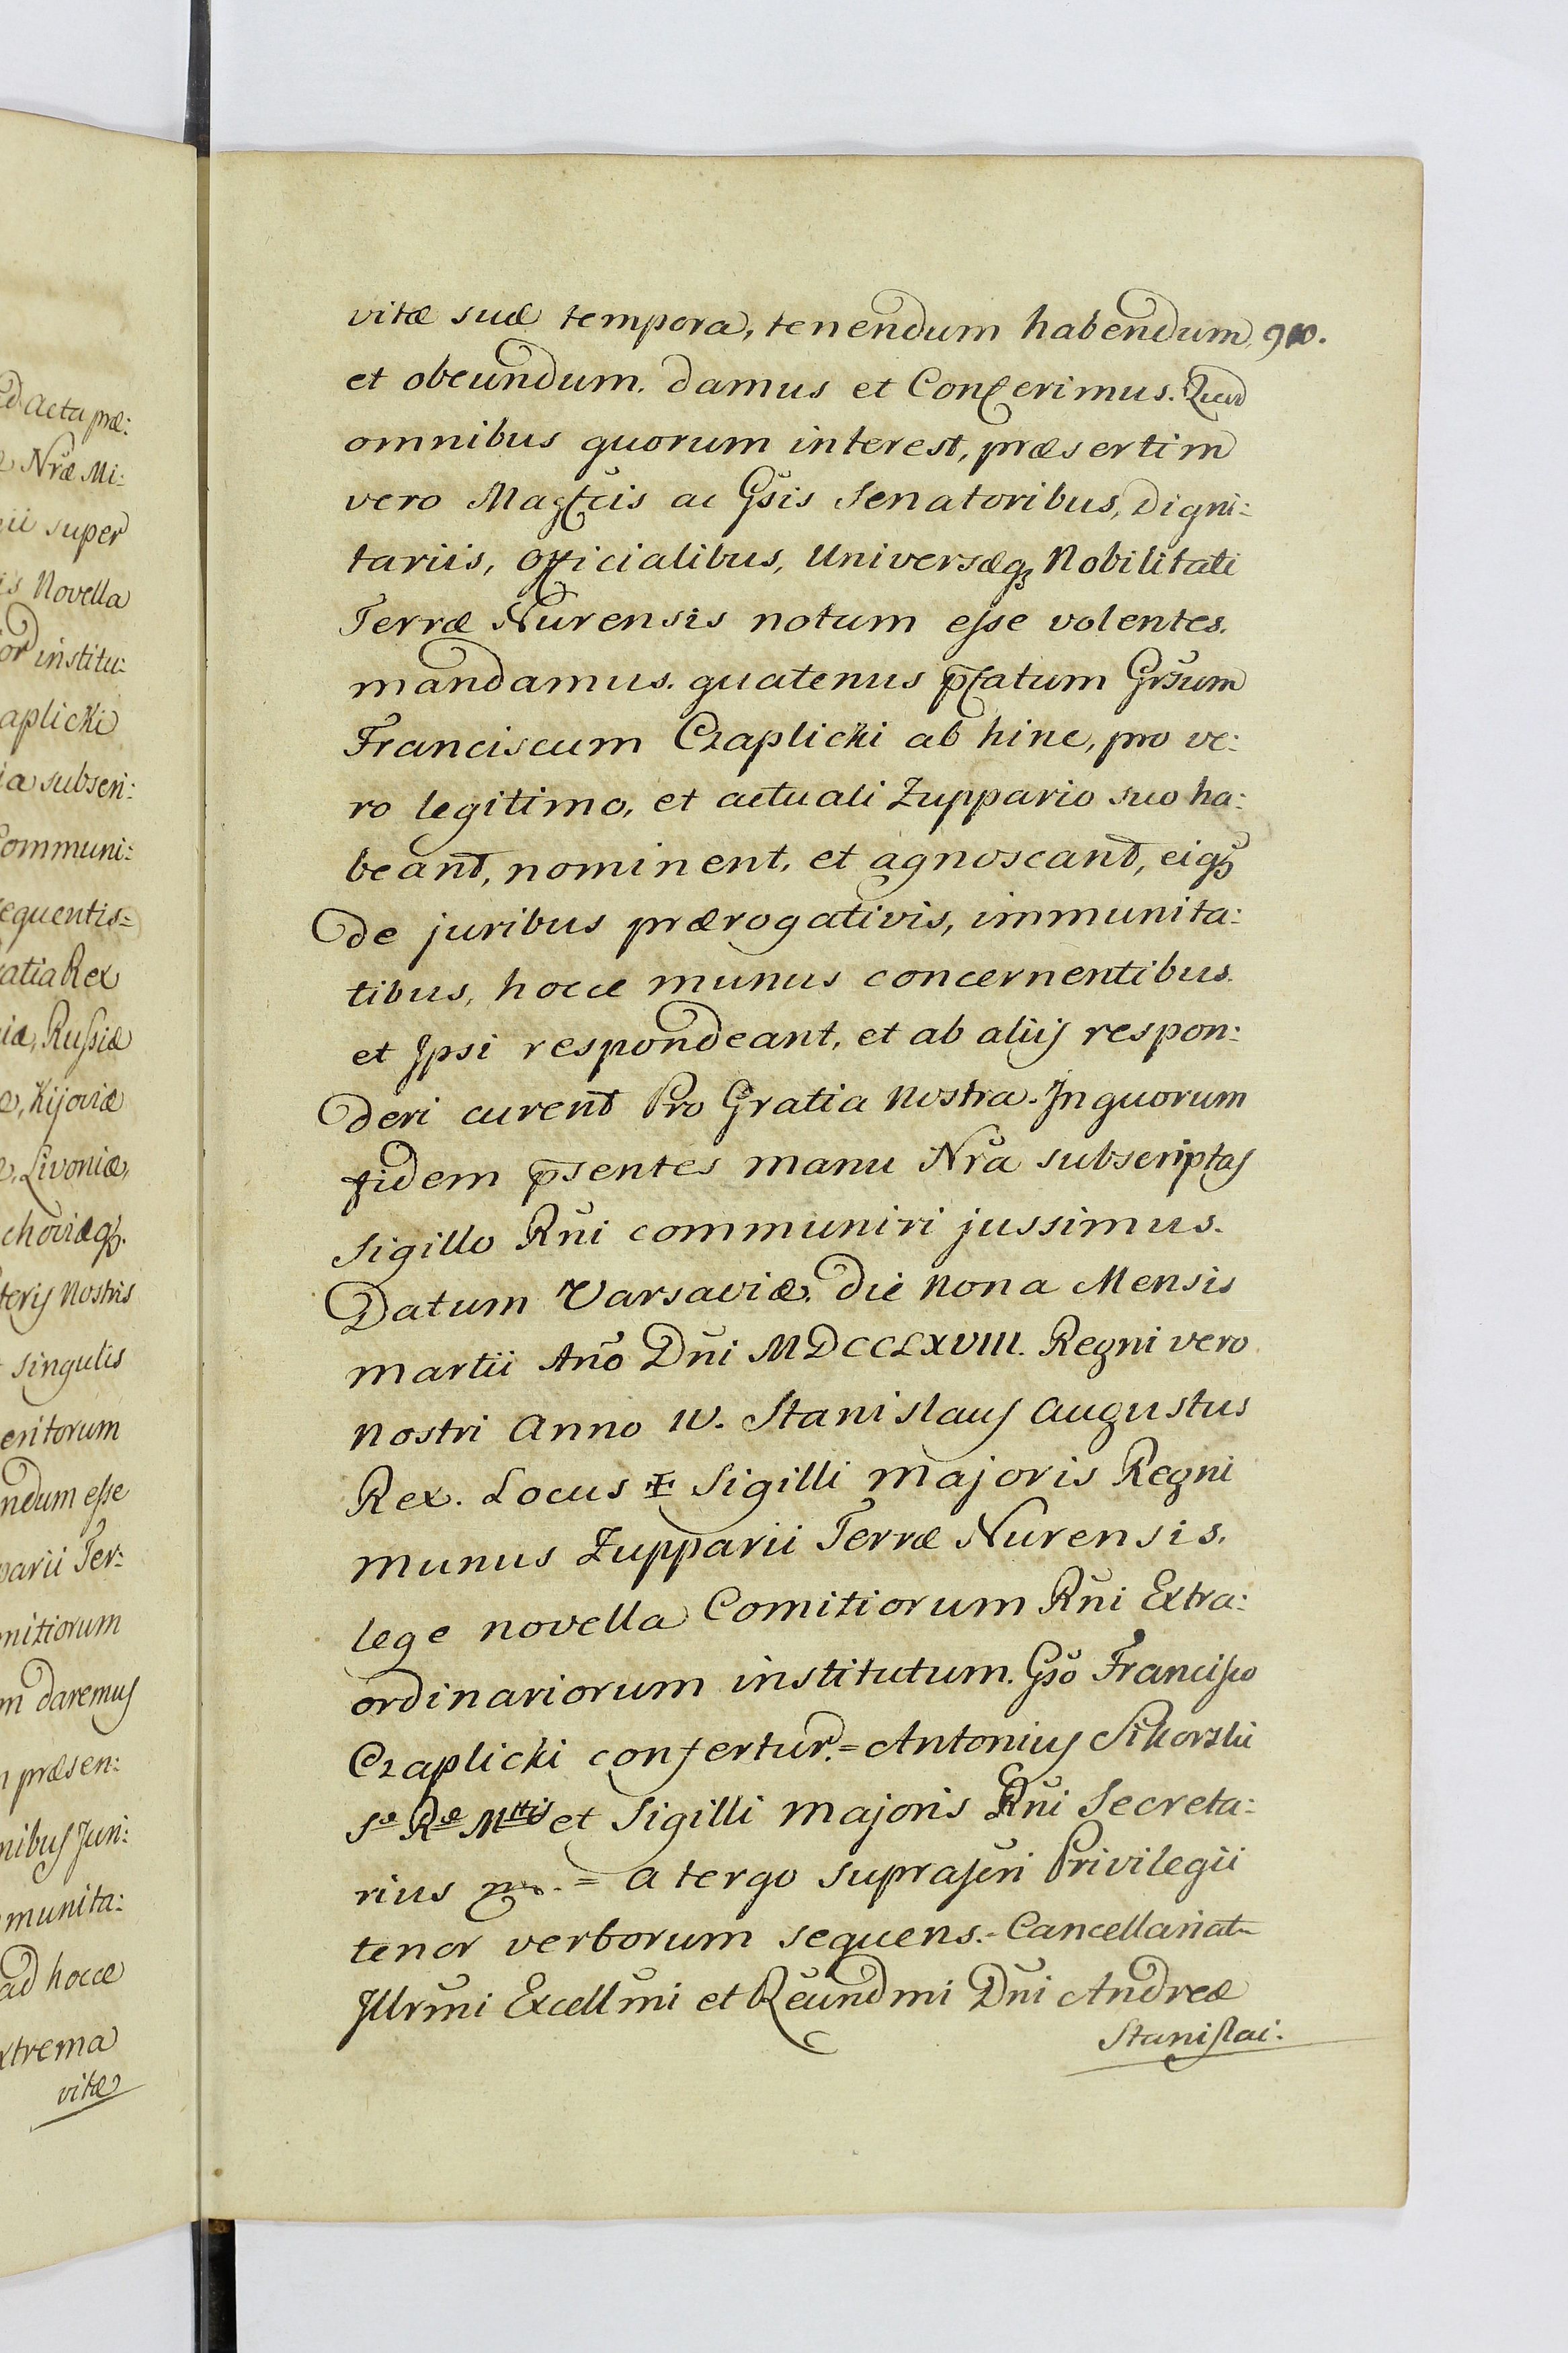 d Acta præ:
Nræ Mi:
ii super
is Novella
or institu:
aplicki
ia subscri:
Communi:
equentis=
atia Rex
iæ, Russiæ
æ, Kijoviæ
æ, Livoniæ,
choviæq3.
terij Nostris
singulis
eritorum
ndum esse
parii Ter:
mitiorum
m daremus
præsen:
nibus Juri:
munita:
ad hocce
xtrema
vitæ
vitæ suæ tempora, tenendum habendum 910.
et obeundum. damus et Conferimus. Quod
omnibus quorum interest, præsertim
vero Magfcis ac Gsis Senatoribus, Digni:
tariis, Officialibus, Universæq3 Nobilitati
Terræ Nurensis notum esse volentes.
mandamus. quatenus pfatum Grsum
Franciscum Czaplicki ab hinc, pro ve:
ro legitimo, et actuali Zuppario suo ha:
beant, nominent, et agnoscant, eiq3
de juribus prærogativis, immunita:
tibus, hocce munus concernentibus.
et Ipsi respondeant, et ab aliis respon:
deri curent Pro Gratia Nostra. In quorum
fidem psentes manu Nra subscriptas
Sigillo Rni communiri jussimus.
Datum Varsaviæ. Die Nona Mensis
Martii Año Dni MDCCLXVIII. Regni vero
Nostri Anno IV. Stanislaus Augustus
Rex. Locus ✠ Sigilli Majoris Regni
Munus Zupparii Terræ Nurensis.
lege novella Comitiorum Rni Extra:
ordinariorum institutum. Gso Francisco
Czaplicki confertur.= Antonius Sikorski
Sæ Ræ Mttis et Sigilli Majoris Rni Secreta:
rius mp. = A tergo suprascri Privilegii
tenor verborum sequens.- Cancellariat
Illrmi Excellmi et Reundmi Dni Andreæ
Stanislai.